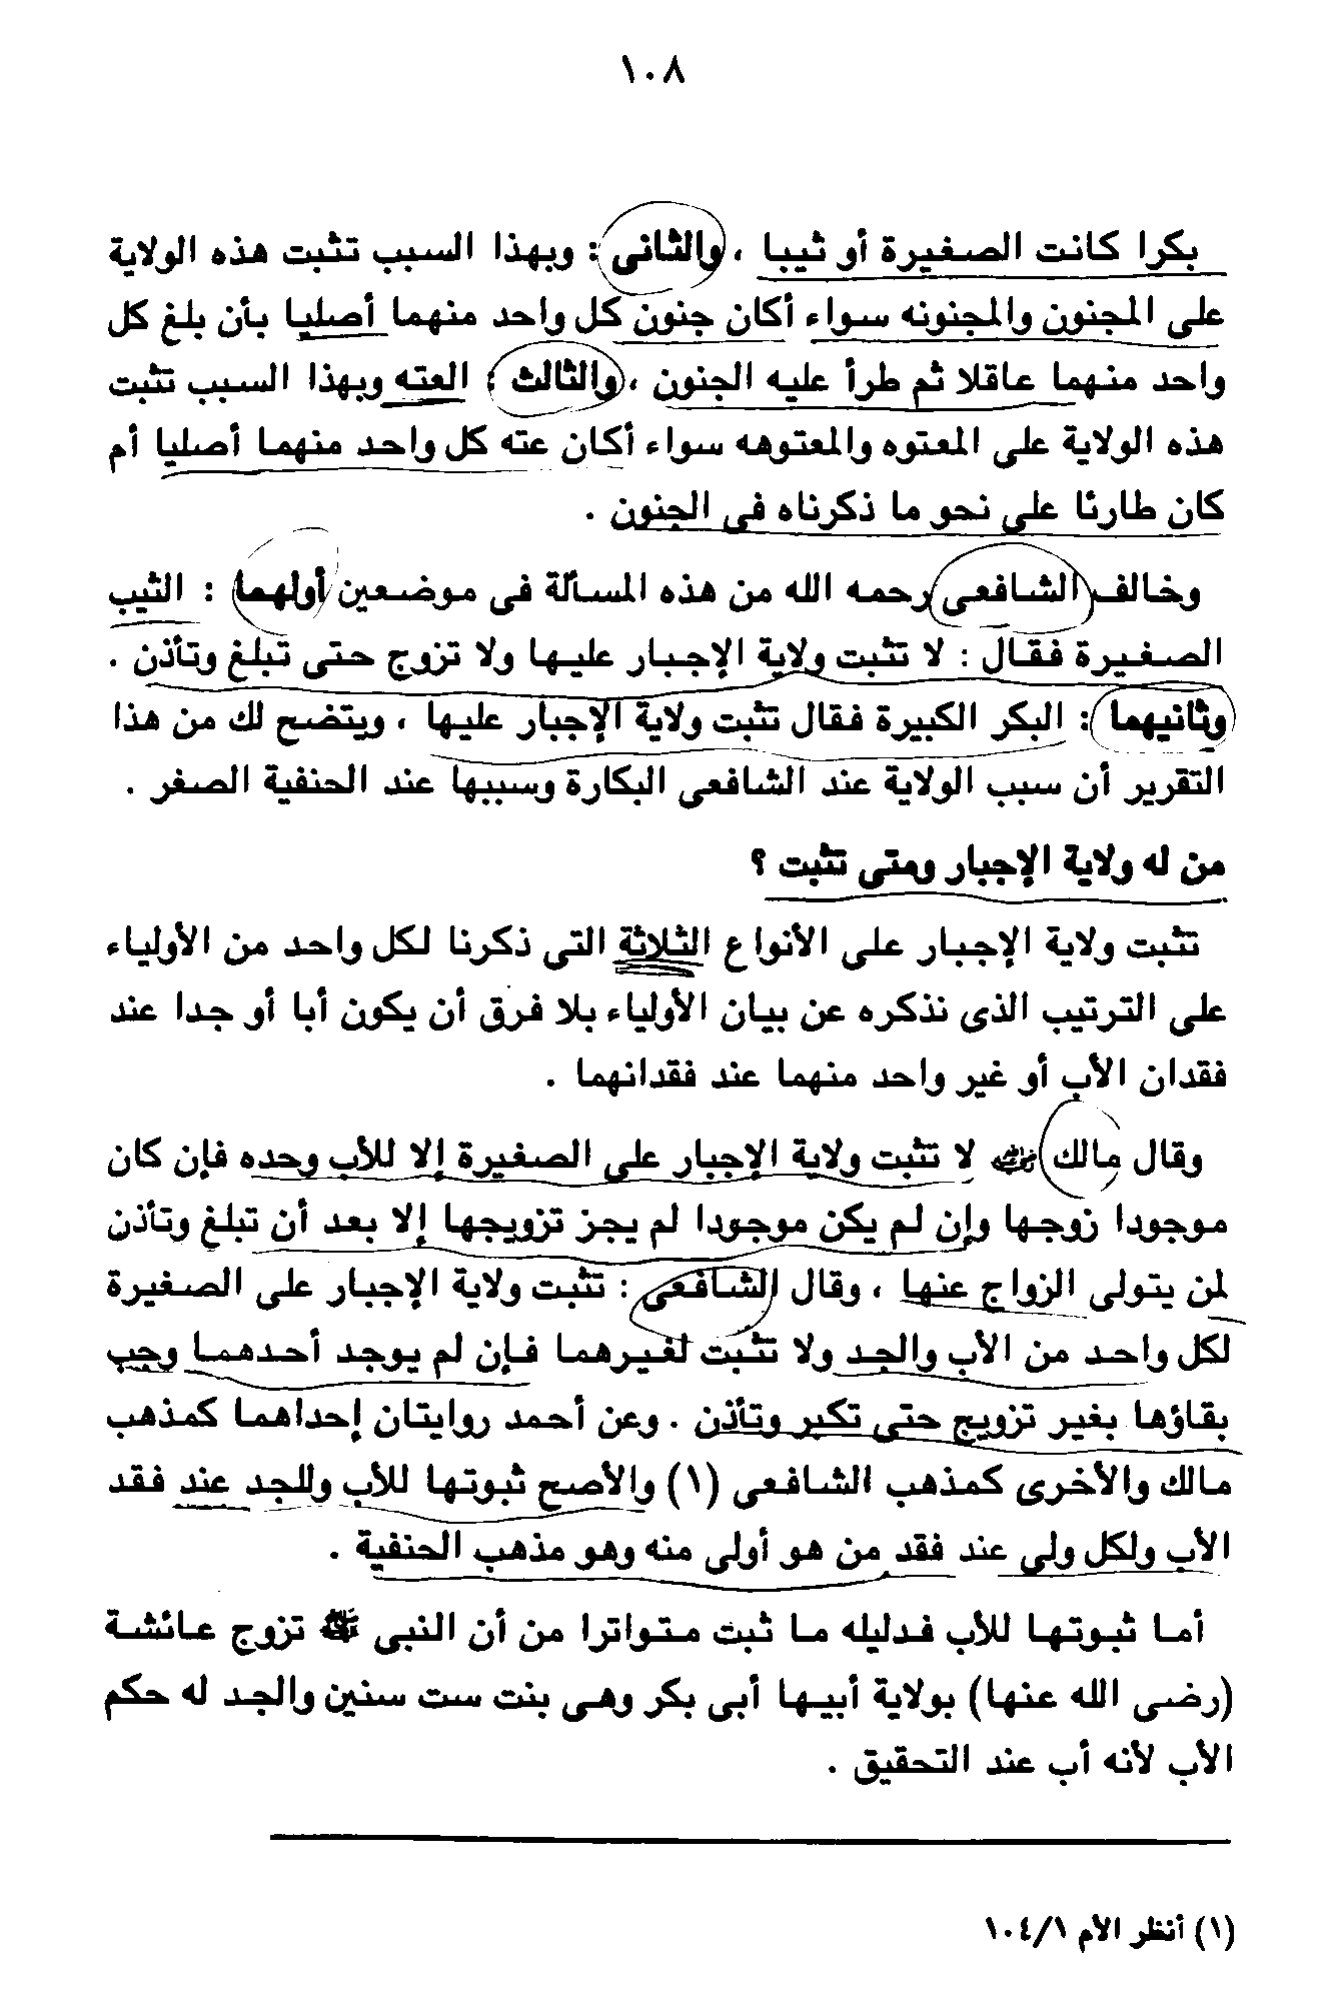 ١٠٨
بكرا كانت الصغيرة أو ثيبا ، والثانى : وبهذا السبب تثبت هذه الولاية
على المجنون والمجنونه سواء أكان جنون كل واحد منهما أصليا بأن بلغ كل
واحد منهما عاقلا ثم طرأ عليه الجنون ، والثالث : العته وبهذا السبب تثبت
هذه الولاية على المعتوه والمعتوهه سواء أكان عته كل واحد منهما أصليا أم
كان طارئا على نحو ما ذكرناه فى الجنون .
وخالف الشافعى رحمه الله من هذه المسألة فى موضعين أولهما : الثيب
الصغيرة فقال : لا تثبت ولاية الإجبار عليها ولا تزوج حتى تبلغ وتأذن .
وثانيهما : البكر الكبيرة فقال تثبت ولاية الإجبار عليها ، ويتضح لك من هذا
التقرير أن سبب الولاية عند الشافعى البكارة وسببها عند الحنفية الصغر .
من له ولاية الإجبار ومتى تثبت ؟
تثبت ولاية الإجبار على الأنواع الثلاثة التى ذكرنا لكل واحد من الأولياء
على الترتيب الذى نذكره عن بيان الأولياء بلا فرق أن يكون أبا أو جدا عند
فقدان الأب أو غير واحد منهما عند فقدانهما .
وقال مالك رضي الله عنه لا تثبت ولاية الإجبار على الصغيرة إلا للأب وحده فإن كان
موجودا زوجها وإن لم يكن موجودا لم يجز تزويجها إلا بعد أن تبلغ وتأذن
لمن يتولى الزواج عنها ، وقال الشافعى : تثبت ولاية الإجبار على الصغيرة
لكل واحد من الأب والجد ولا تثبت لغيرهما فإن لم يوجد أحدهما وجب
بقاؤها بغير تزويج حتى تكبر وتأذن . وعن أحمد روايتان إحداهما كمذهب
مالك والأخرى كمذهب الشافعى (١) والأصح ثبوتها للأب وللجد عند فقد
الأب ولكل ولى عند فقد من هو أولى منه وهو مذهب الحنفية .
أما ثبوتها للأب فدليله ما ثبت متواترا من أن النبى ﷺ تزوج عائشة
(رضى الله عنها) بولاية أبيها أبى بكر وهى بنت ست سنين والجد له حكم
الأب لأنه أب عند التحقيق .
(١) أنظر الأم ١٠٤/١